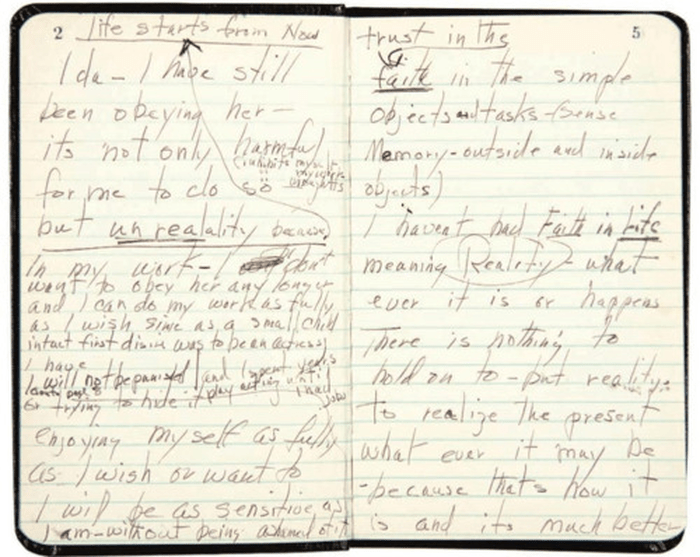 2 life starts from Now
Ida – I have still
been obeying her –
its not only harmful
(inhibits myself my work
for me to do so
but unreality because
In my work – I don't
want to obey her any longer
and I can do my work as fully
as I wish since as a small child
intact first desire was to be an actress
I have
I will not be punished and I spent years
play acting until
or trying to hide it I had
jobs
enjoying myself as fully
as I wish or want to
I will be as sensitive as
I am – without being ashamed of it
5
trust in the
faith in the simple
objects and tasks – (sense
Memory – outside and inside
objects)
I havent had Faith in Life
meaning Reality – what
ever it is or happens
There is nothing to
hold on to – but reality
to realize the present
what ever it may be
– because thats how it
is and its much better